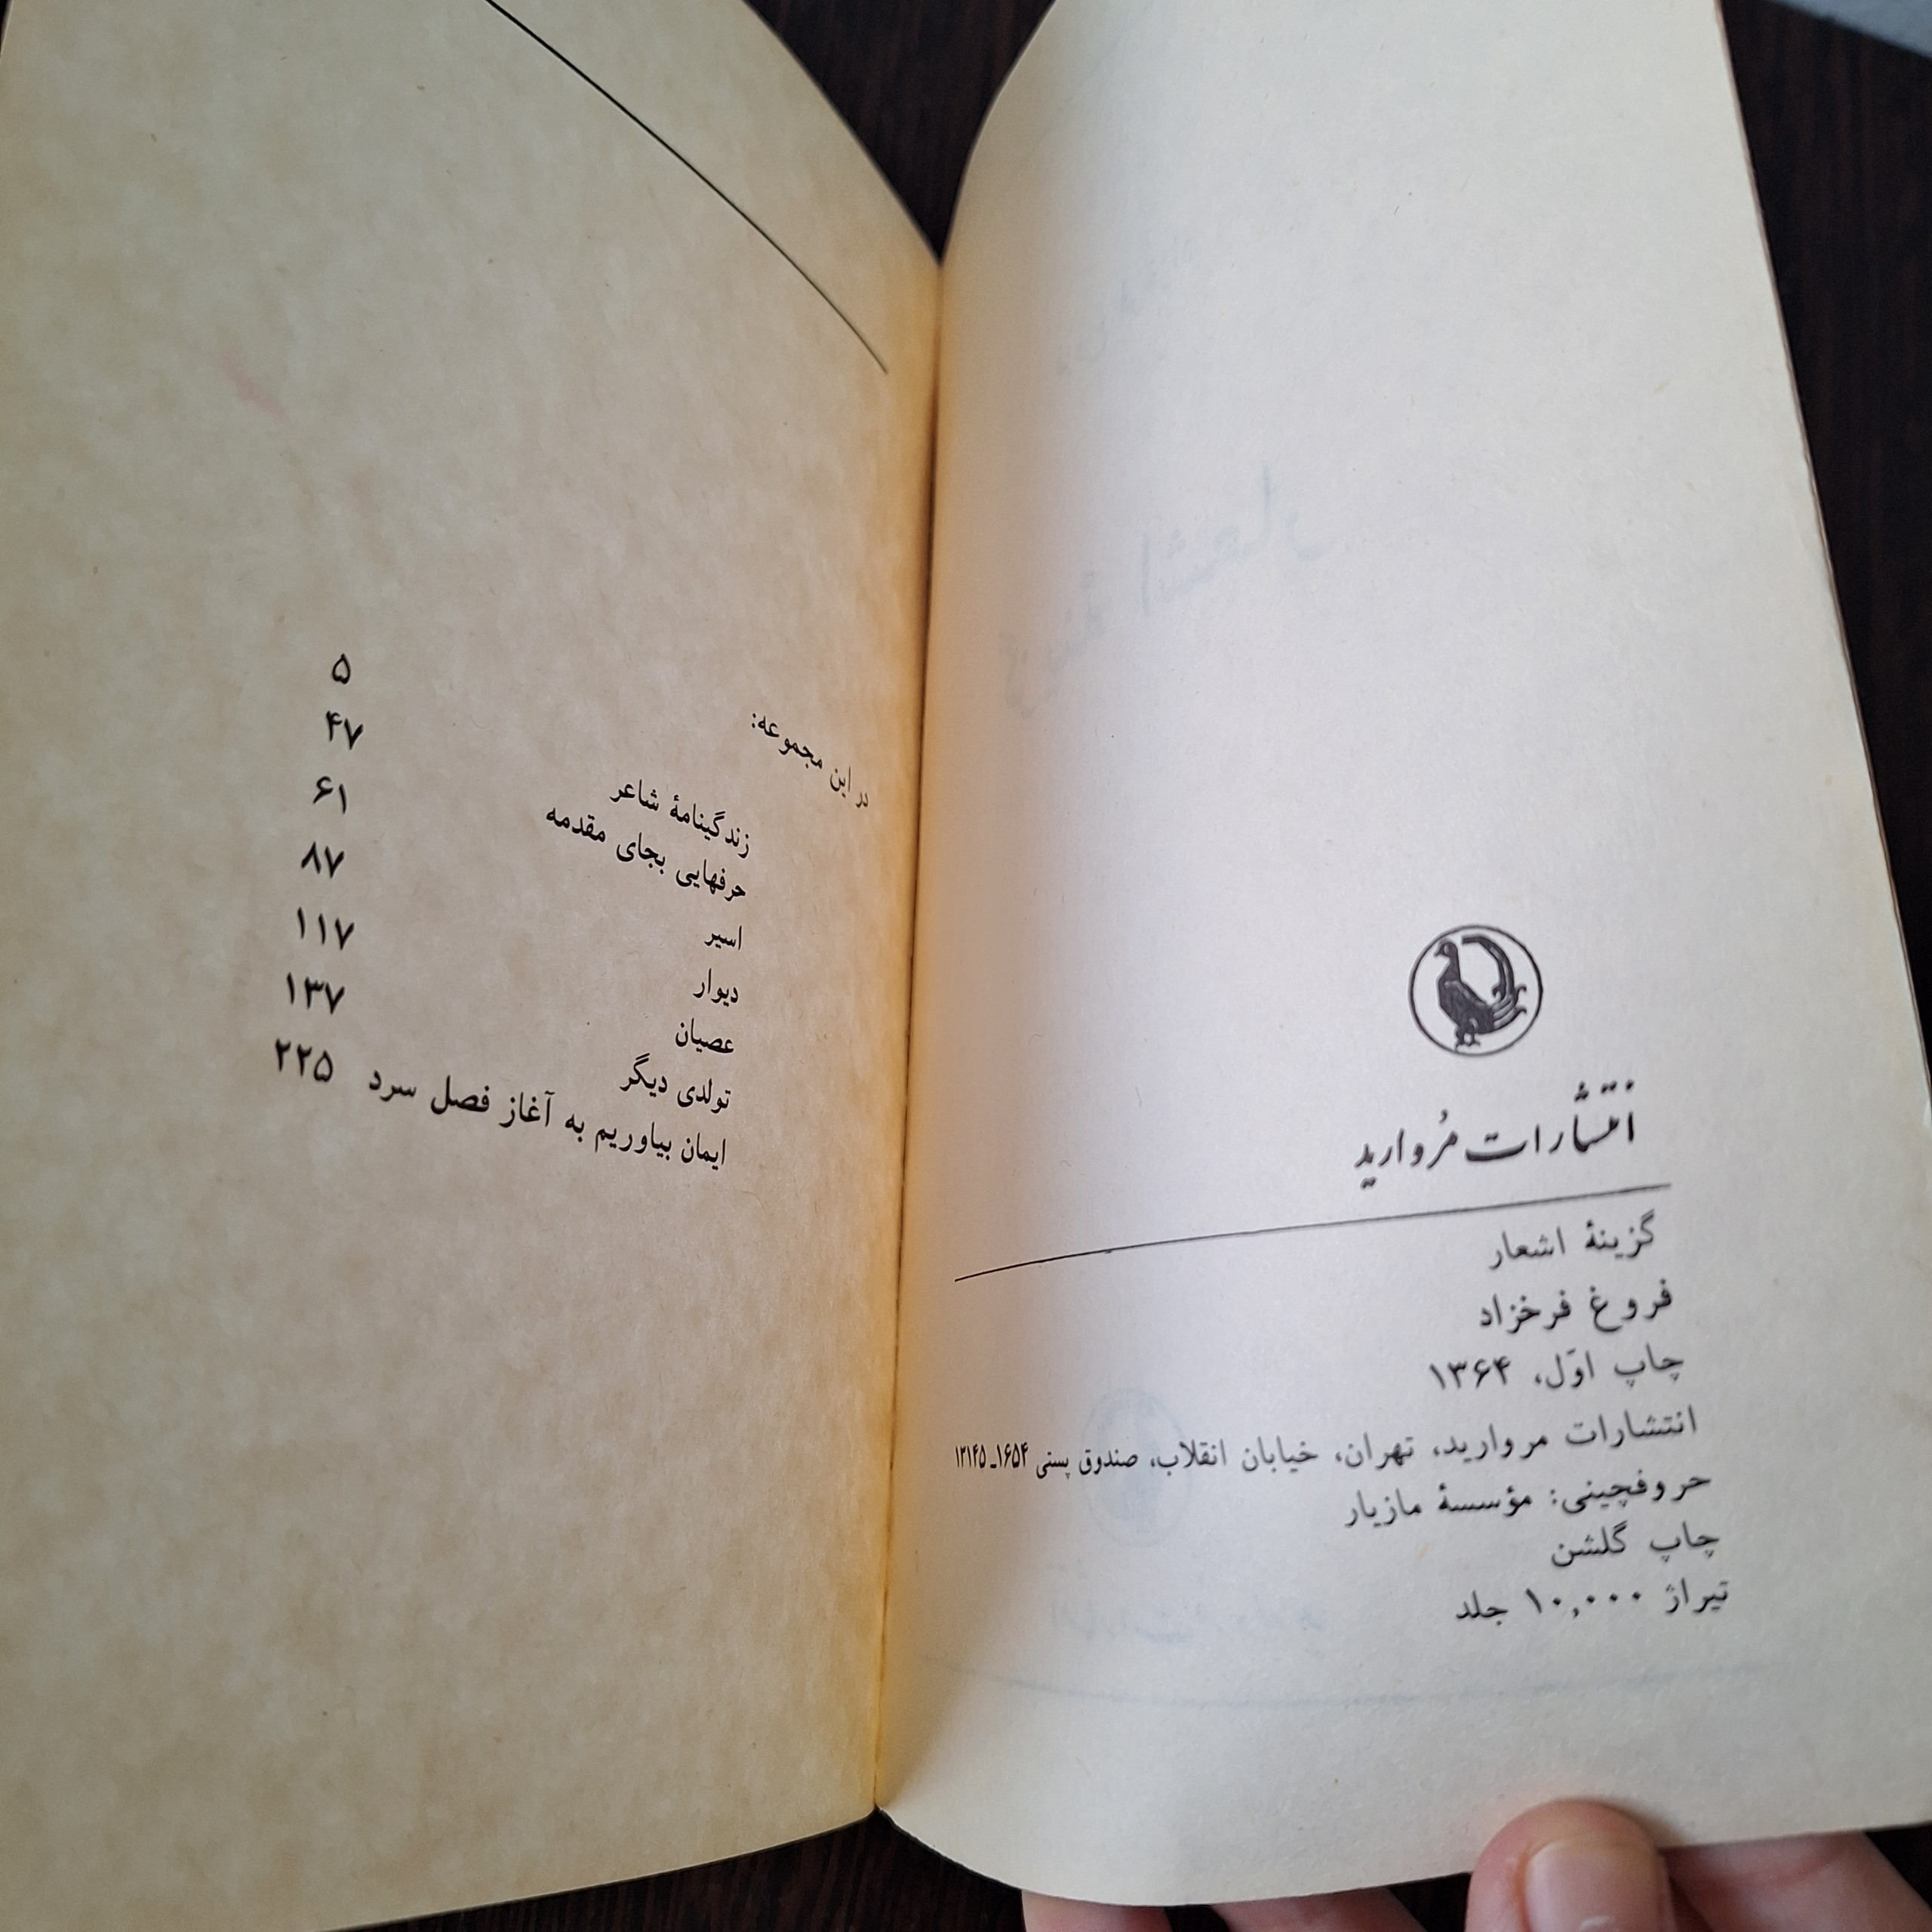 انتشارات مُروارید
گزینهٔ اشعار
فروغ فرخزاد
چاپ اوّل، ۱۳۶۴
انتشارات مروارید، تهران، خیابان انقلاب، صندوق پستی ۱۶۵۴ـ۱۳۱۴۵
حروفچینی: مؤسسهٔ مازیار
چاپ گلشن
تیراژ ۱۰,۰۰۰ جلد
در این مجموعه:
زندگینامهٔ شاعر ۵
حرفهایی بجای مقدمه ۴۷
اسیر ۶۱
دیوار ۸۷
عصیان ۱۱۷
تولدی دیگر ۱۳۷
ایمان بیاوریم به آغاز فصل سرد ۲۲۵